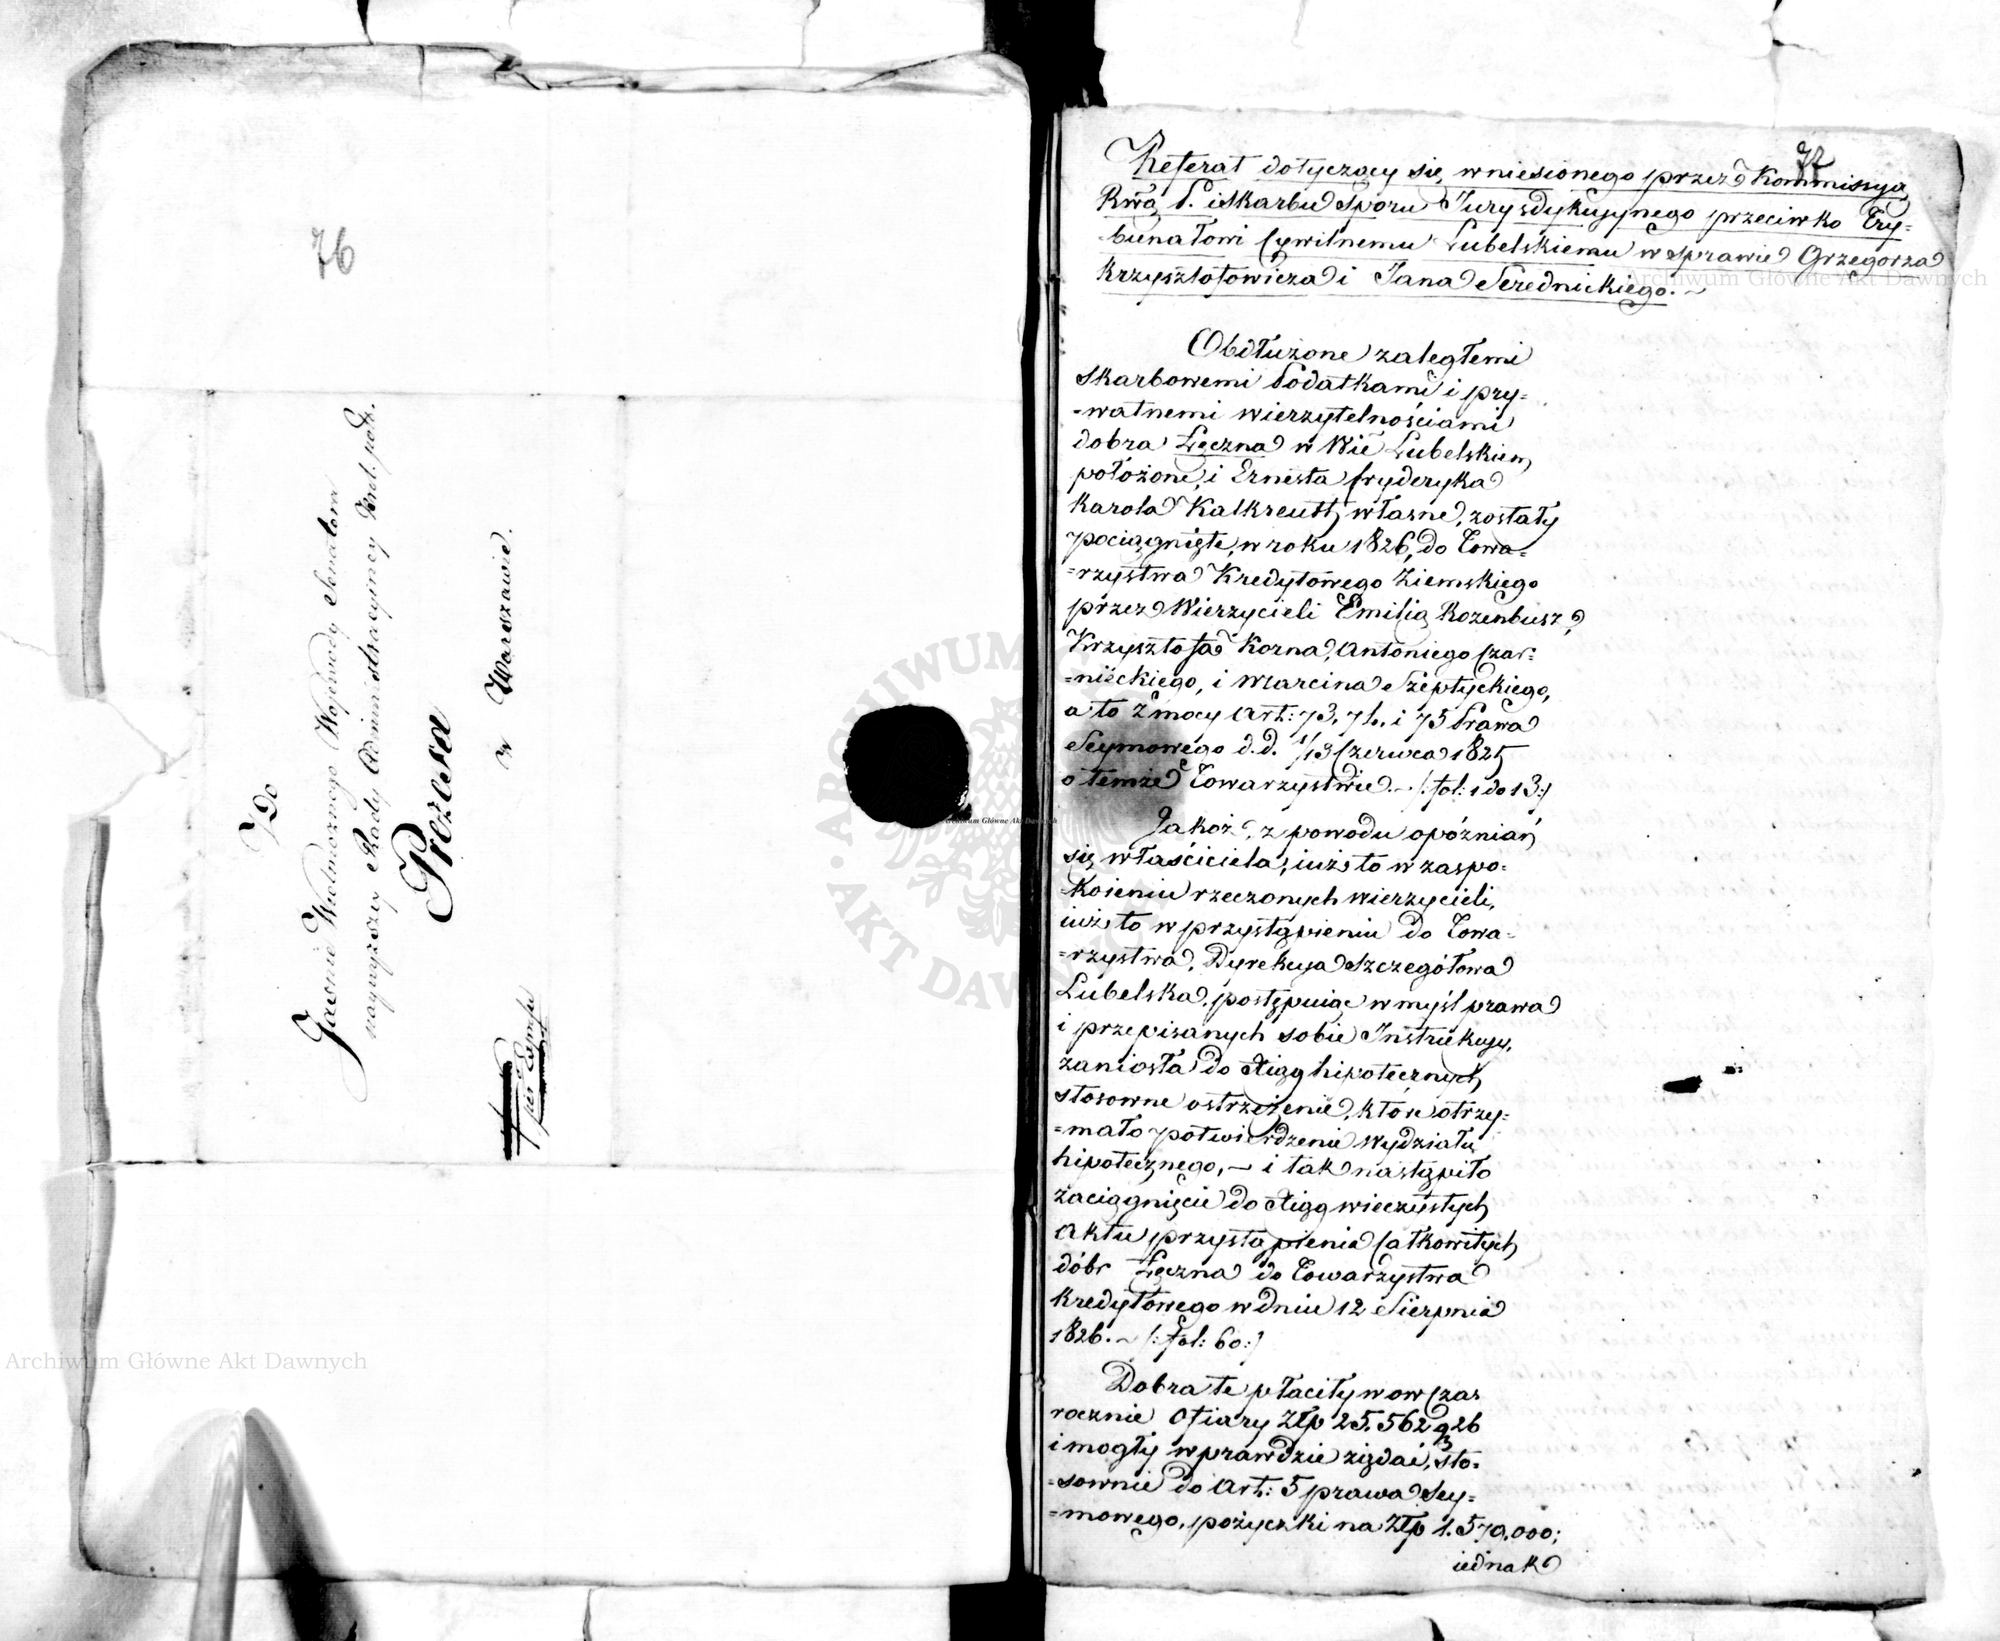 76
Do
Jaśnie Wielmożnego Wojewody Senatora
naywyższey Rady Administracyiney Król. pols.
Prezesa
w Warszawie.
per Expressum
77
Referat dotyczący się wniesionego przez Kommissyą
Rwą P. i Skarbu Sporu Jurysdykcyjnego przeciwko Try=
bunałowi Cywilnemu Lubelskiemu w sprawie Grzegorza
Krzysztofowicza i Jana Serednickiego. ~
Obdłużone zaległemi
Skarbowemi Podatkami i pry=
=watnemi wierzytelnościami
dobra Łęczna w Wie Lubelskiem
położone, i Ernesta Fryderyka
Karola Kalkreuth własne, zostały
pociągnięte, w roku 1826, do Towa=
=rzystwa Kredytowego Ziemskiego
przez Wierzycieli Emilią Rozenbusz,
Krzysztofa Korna, Antoniego Czar=
=nieckiego, i Marcina Szeptyckiego,
a to z mocy Art: 73, 74, i 75 Prawa
Seymowego d.d. 1/13 Czerwca 1825
o temże Towarzystwie. ~ /: fol: 1 do 13:/
Jakoż, z powodu opóźniań
się właściciela, iużto w zaspo=
=koieniu rzeczonych wierzycieli,
iużto w przystąpieniu do Towa=
=rzystwa, Dyrekcya Szczegółowa
Lubelska, postępuiąc w myśl prawa
i przepisanych sobie Instrukcyy,
zaniosła do Xiąg hipotecznych
stosowne ostrzeżenie, które otrzy=
=mało potwierdzenie Wydziału
hipotecznego, — i tak nastąpiło
zaciągnięcie do Xiąg wieczystych
Aktu przystąpienia całkowitych
dóbr Łęczna do Towarzystwa
Kredytowego w dniu 12 Sierpnia
1826. ~ /: fol: 60:/
Dobra te płaciły wowczas
rocznie Ofiary Złp 25.562 g 26
i mogły wprawdzie żądać, sto=
=sownie do Art: 5 prawa Sey=
=mowego, pożyczki na Złp 1.570.000;
iednak